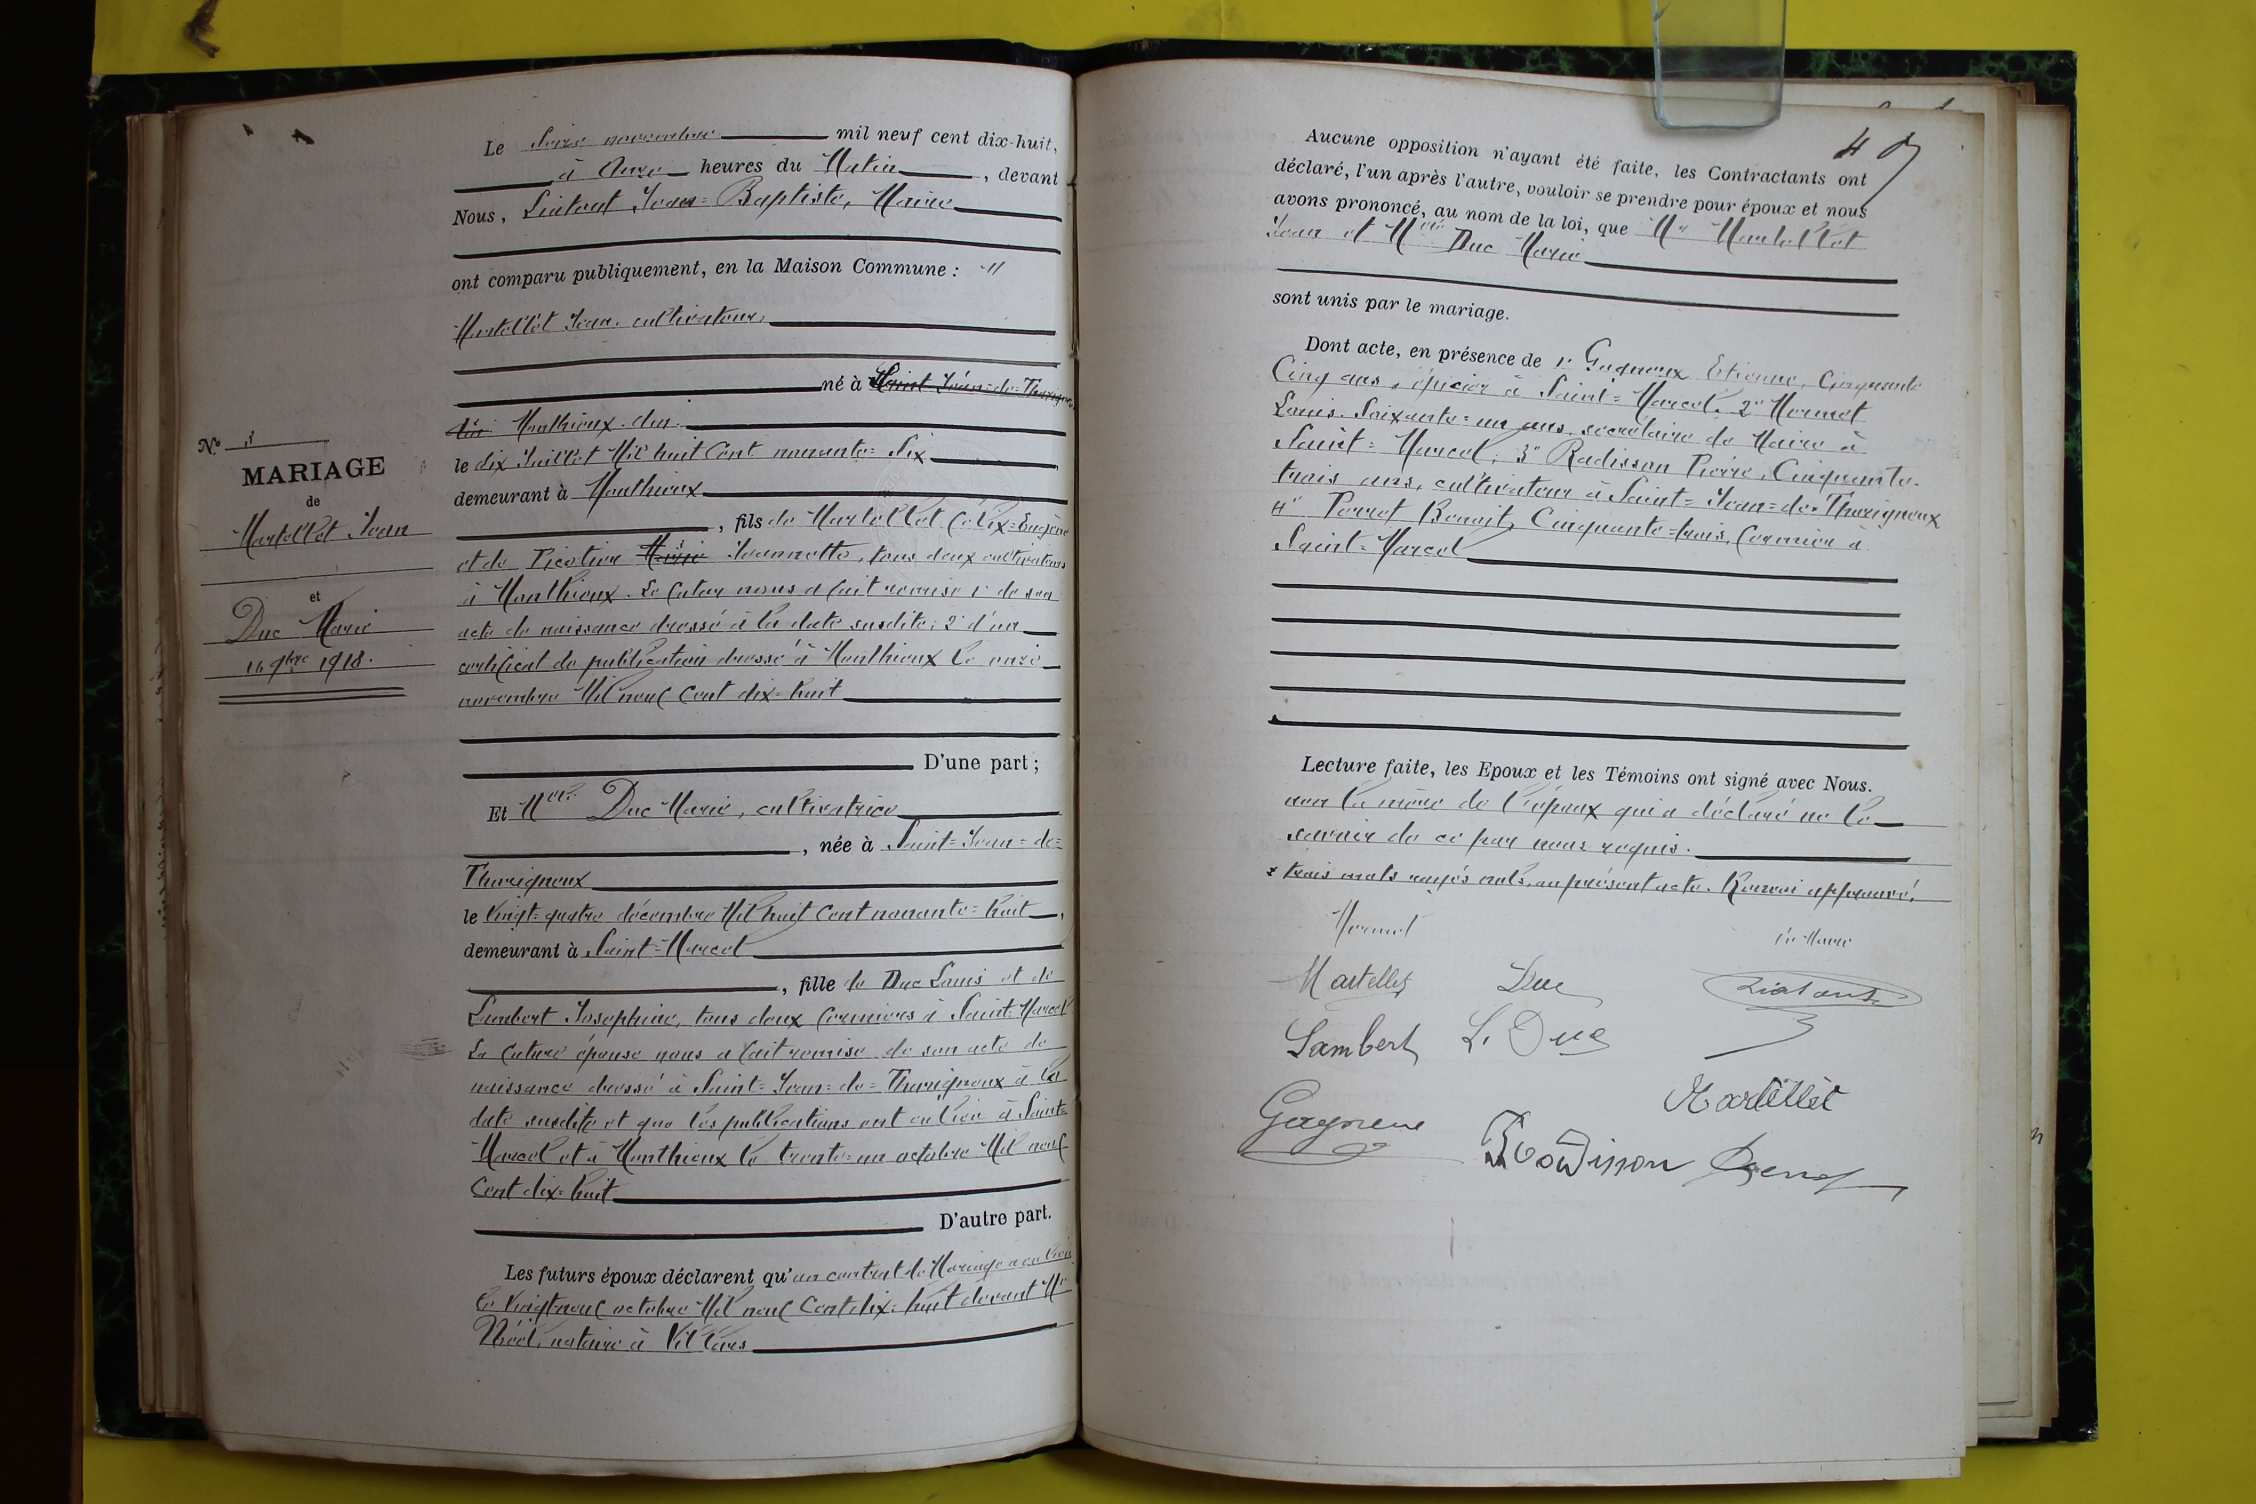 Le Seize novembre mil neuf cent dix-huit,
à Onze heures du Matin, devant
Nous, Liatout Jean=Baptiste, Maire
ont comparu publiquement, en la Maison Commune : M
Martellet Jean, cultivateur,
né à Saint Jean=de=Thurigneux
Monthieux. Ain.
le dix Juillet Mil huit Cent nonante=Six
demeurant à Monthieux
, fils de Martellet Félix=Eugène
et de Picotin Marie Jeannette, tous deux cultivateurs
à Monthieux. Le futur nous a fait remise 1° de son
acte de naissance dressé à la date susdite; 2° d'un
certificat de publication dressé à Monthieux le onze
novembre Mil neuf Cent dix=huit
D'une part ;
Et Melle Duc Marie, cultivatrice
, née à Saint=Jean=de=
Thurigneux
le Vingt=quatre décembre Mil huit Cent nonante=huit,
demeurant à Saint=Marcel
, fille de Duc Louis et de
Lambert Josephine, tous deux fermiers à Saint=Marcel
La future épouse nous a fait remise de son acte de
naissance dressé à Saint=Jean=de=Thurigneux à la
date susdite et que les publications ont eu lieu à Saint=
Marcel et à Monthieux le trente=un octobre Mil neuf
Cent dix=huit
D'autre part.
Les futurs époux déclarent qu'un contrat de Mariage a eu lieu
le Vingt neuf octobre Mil neuf Cent dix=huit devant Me
notaire à Villars
No 3
MARIAGE
de
Martellet Jean
et
Duc Marie
16 9bre 1918.
Aucune opposition n'ayant été faite, les Contractants ont
déclaré, l'un après l'autre, vouloir se prendre pour époux et nous
avons prononcé, au nom de la loi, que Mr Martellet
Jean et Melle Duc Marie
sont unis par le mariage.
Dont acte, en présence de 1° Gagneux Etienne, Cinquante
Cinq ans, épicier à Saint=Marcel, 2° Mermet
Louis, Soixante=un ans, secrétaire de Mairie à
Saint=Marcel, 3° Radisson Pierre, Cinquante-
trois ans, cultivateur à Saint=Jean=de=Thurigneux
4° Perret Benoit, Cinquante=trois, fermier à
Saint=Marcel
Lecture faite, les Epoux et les Témoins ont signé avec Nous.
non la mère de l'époux qui a déclaré ne le
savoir de ce par nous requis.
trois mots rayés nuls, au présent acte. Renvoi approuvé.
Mermet
Le Maire
Martellet
Duc
Liatout
Lambert
L. Duc
Martellet
Gagneux
Radisson
Perret